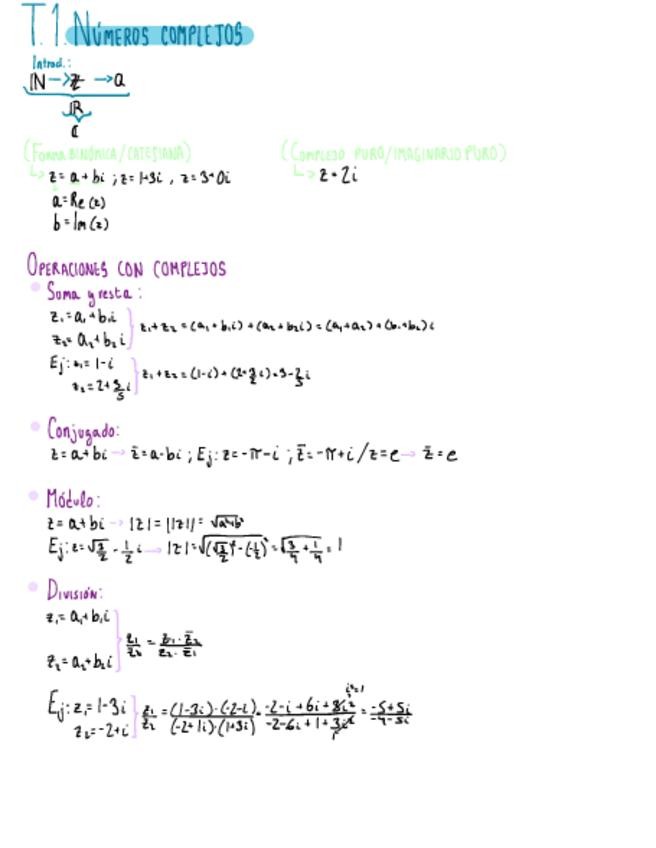 T.1. NÚMEROS COMPLEJOS
Introd.:
ℕ → ℤ → Q
ℝ
ℂ
(FORMA BINÓMICA / CATESIANA) (COMPLEJO PURO/IMAGINARIO PURO)
↳ z = a + bi ; z = 1+3i , z = 3+0i ↳ z = 2i
a = Re(z)
b = Im(z)
OPERACIONES CON COMPLEJOS
• Suma y resta:
z₁ = a₁ + b₁i
z₂ = a₂ + b₂i } z₁ + z₂ = (a₁ + b₁i) + (a₂ + b₂i) = (a₁ + a₂) + (b₁ + b₂)i
Ej: z₁ = 1 - i
z₂ = 2 + 3/5 i } z₁ + z₂ = (1-i) + (2 + 3/5 i) = 3 - 2/5 i
• Conjugado:
z = a + bi → z̄ = a - bi ; Ej: z = -π - i ; z̄ = -π + i / z = e → z̄ = e
• Módulo:
z = a + bi → |z| = ||z|| = √(a²+b²)
Ej: z = √3/2 - 1/2 i → |z| = √((√3/2)² - (-1/2)²) = √(3/4 + 1/4) = 1
• DIVISIÓN:
z₁ = a₁ + b₁i
z₁/z₂ = z₁·z̄₂ / z₂·z̄₁
z₂ = a₂ + b₂i
i² = 1
Ej: z₁ = 1-3i } z₁/z₂ = (1-3i)·(-2-i) / (-2+1i)·(1+3i) = -2-i+6i+3i² / -2-6i+1+3i² = -5+5i / -4-5i
z₂ = -2+i